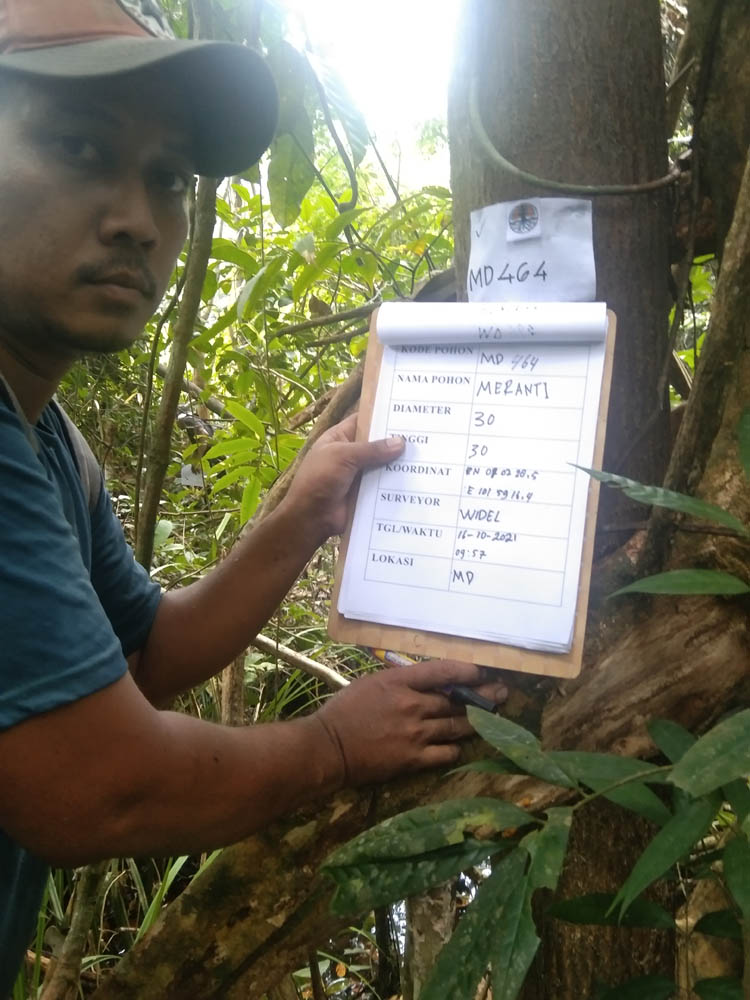 MD464
KODE POHON MD 464
NAMA POHON MERANTI
DIAMETER 30
TINGGI 30
KOORDINAT
E 101 59 16.4
SURVEYOR WIDEL
TGL/WAKTU 16-10-2021
09:57
LOKASI MD